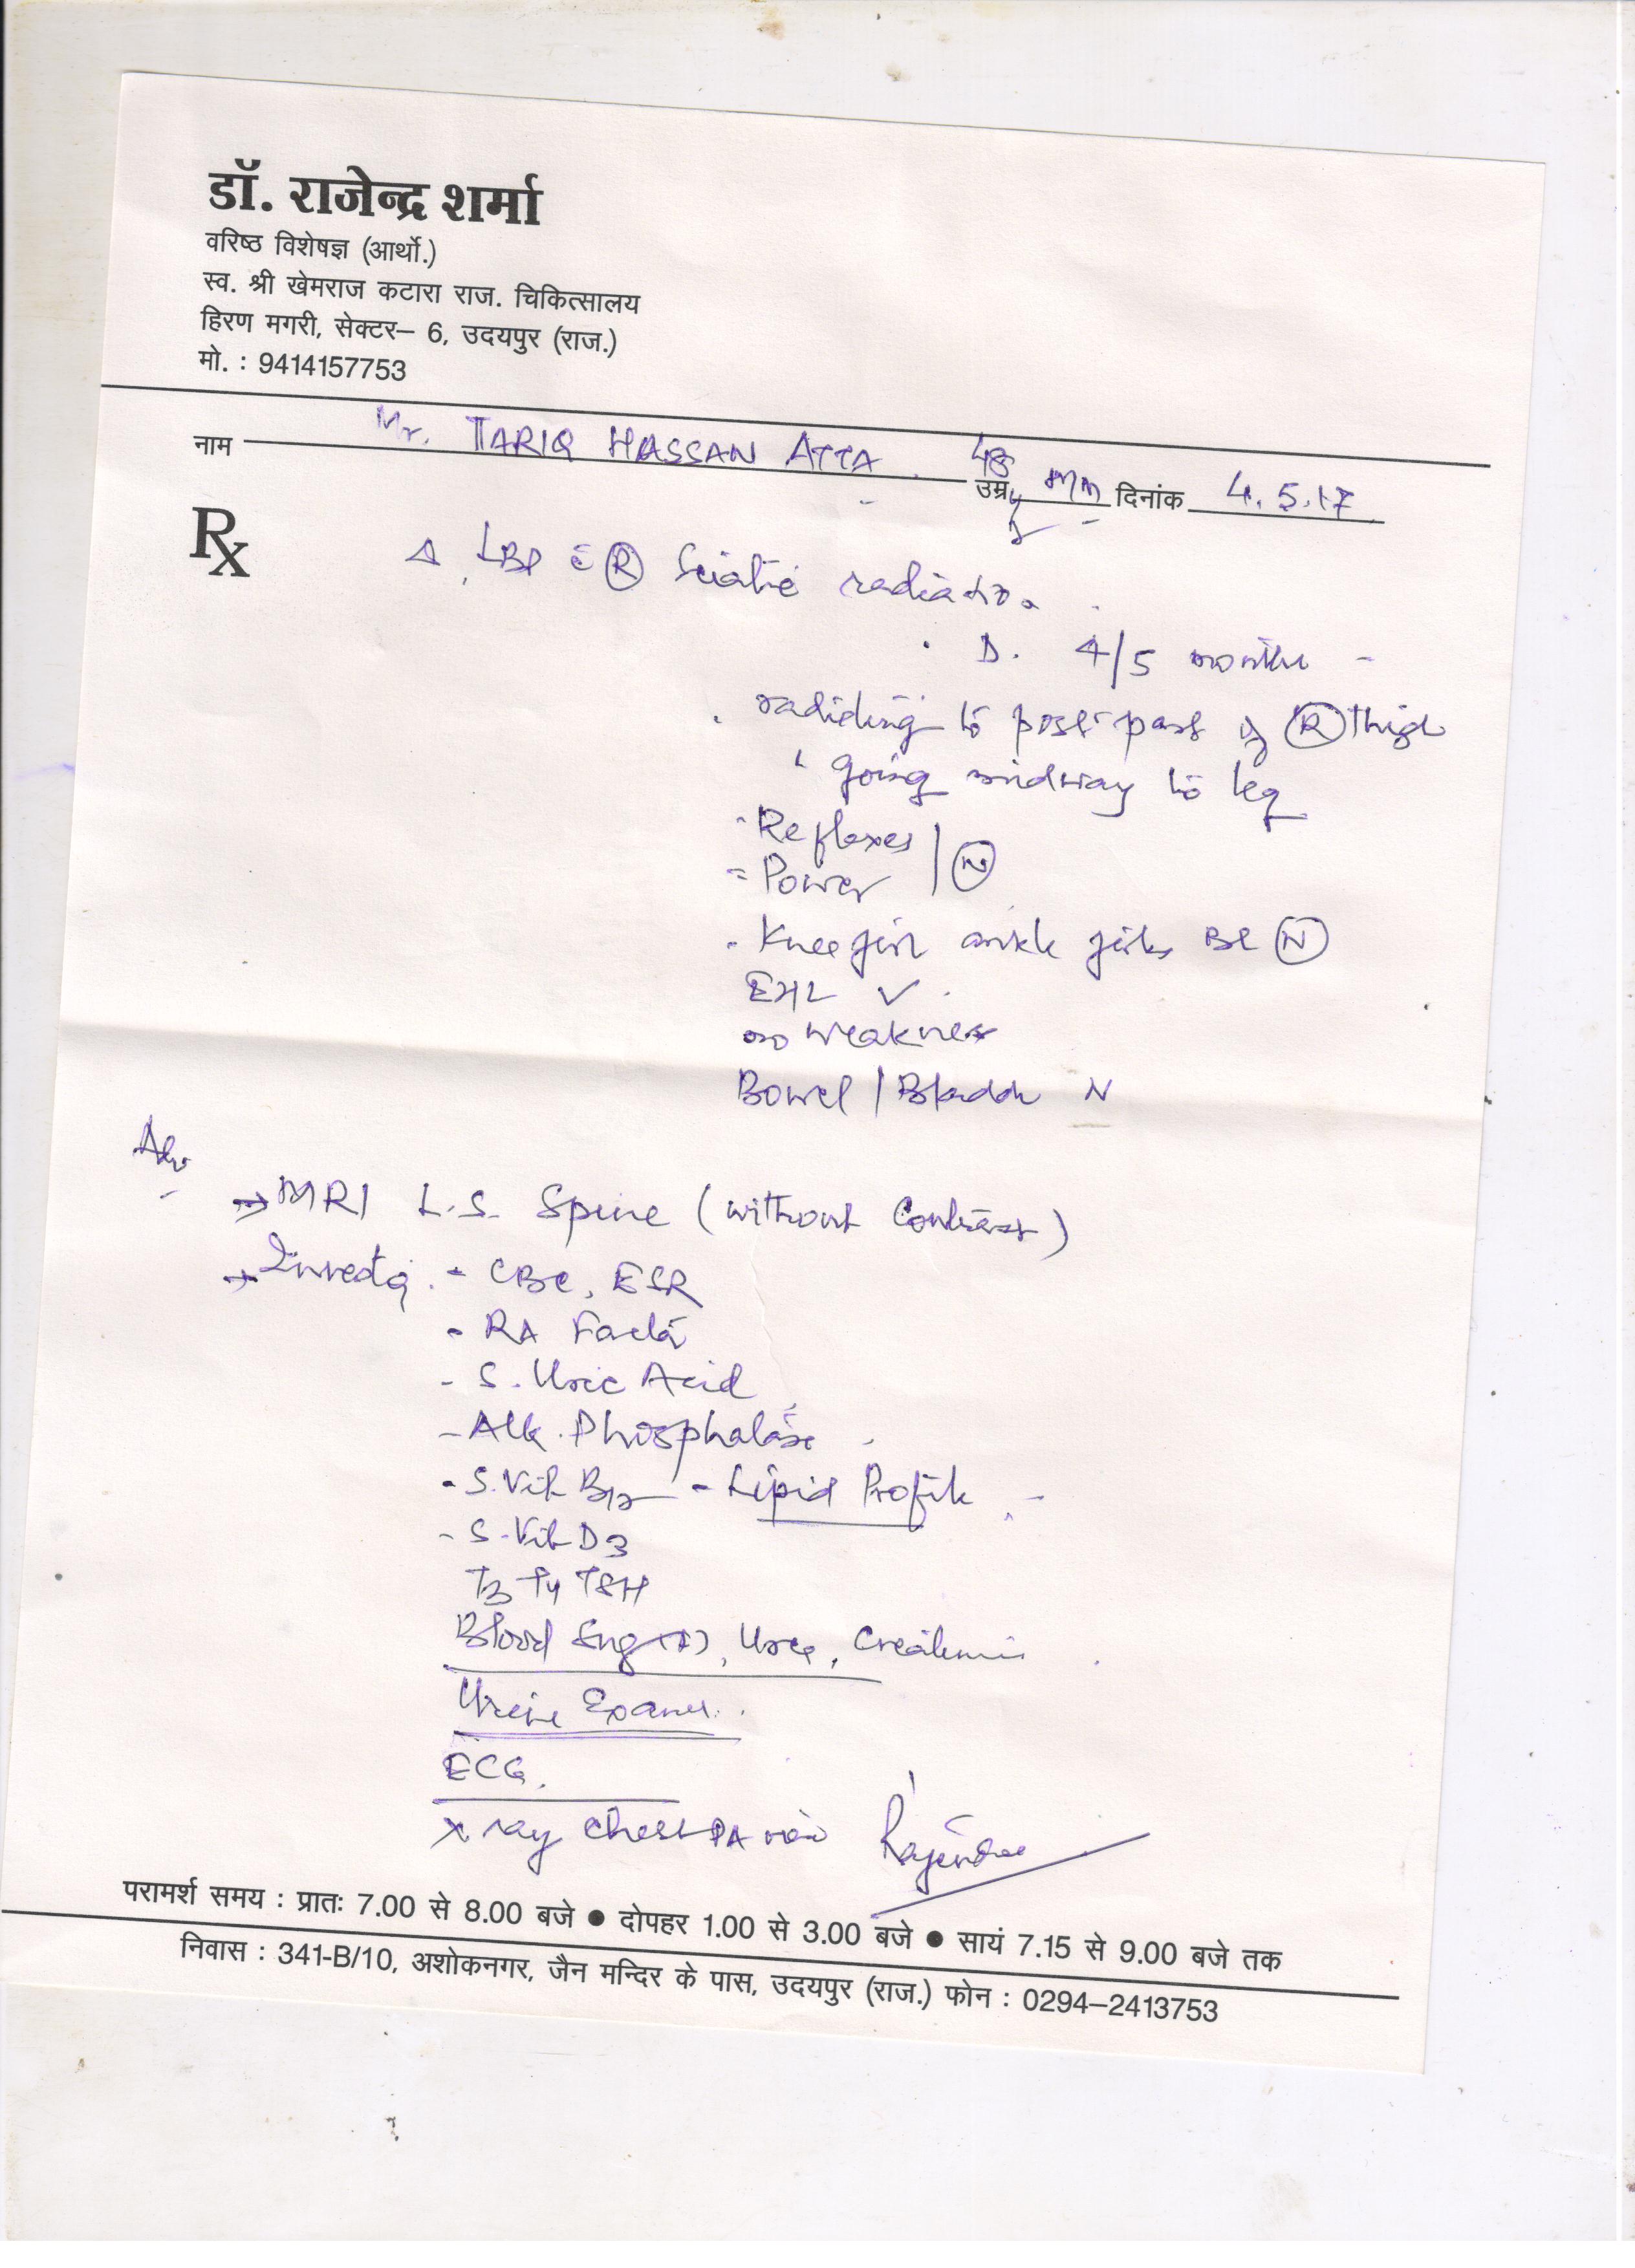 डॉ. राजेन्द्र शर्मा
वरिष्ठ विशेषज्ञ (आर्थो.)
स्व. श्री खेमराज कटारा राज. चिकित्सालय
हिरण मगरी, सेक्टर– 6, उदयपुर (राज.)
मो. : 9414157753
नाम Mr. TARIQ HASSAN ATTA 48 उम्र दिनांक 4.5.17
Rx
Δ LBP c̄ (R) Sciatic radiation
D. 4/5 months
radiating to post part of (R) thigh
going midway to leg
Reflexes
Power / (N)
Knee jerk ankle jerks BL (N)
EHL ✓
no weakness
Bowel / Bladder N
Adv
→ MRI L.S. Spine (without Contrast)
→ Investg. - CBC, ESR
- RA Factor
- S. Uric Acid
- Alk. Phosphatase
- S. Vit B12 - Lipid Profile
- S. Vit D3
T3 T4 TSH
Blood Sug (R), Urea, Creatinine
Urine Exam.
ECG.
X ray Chest PA view Rajendra
परामर्श समय : प्रातः 7.00 से 8.00 बजे ● दोपहर 1.00 से 3.00 बजे ● सायं 7.15 से 9.00 बजे तक
निवास : 341-B/10, अशोकनगर, जैन मन्दिर के पास, उदयपुर (राज.) फोन : 0294–2413753